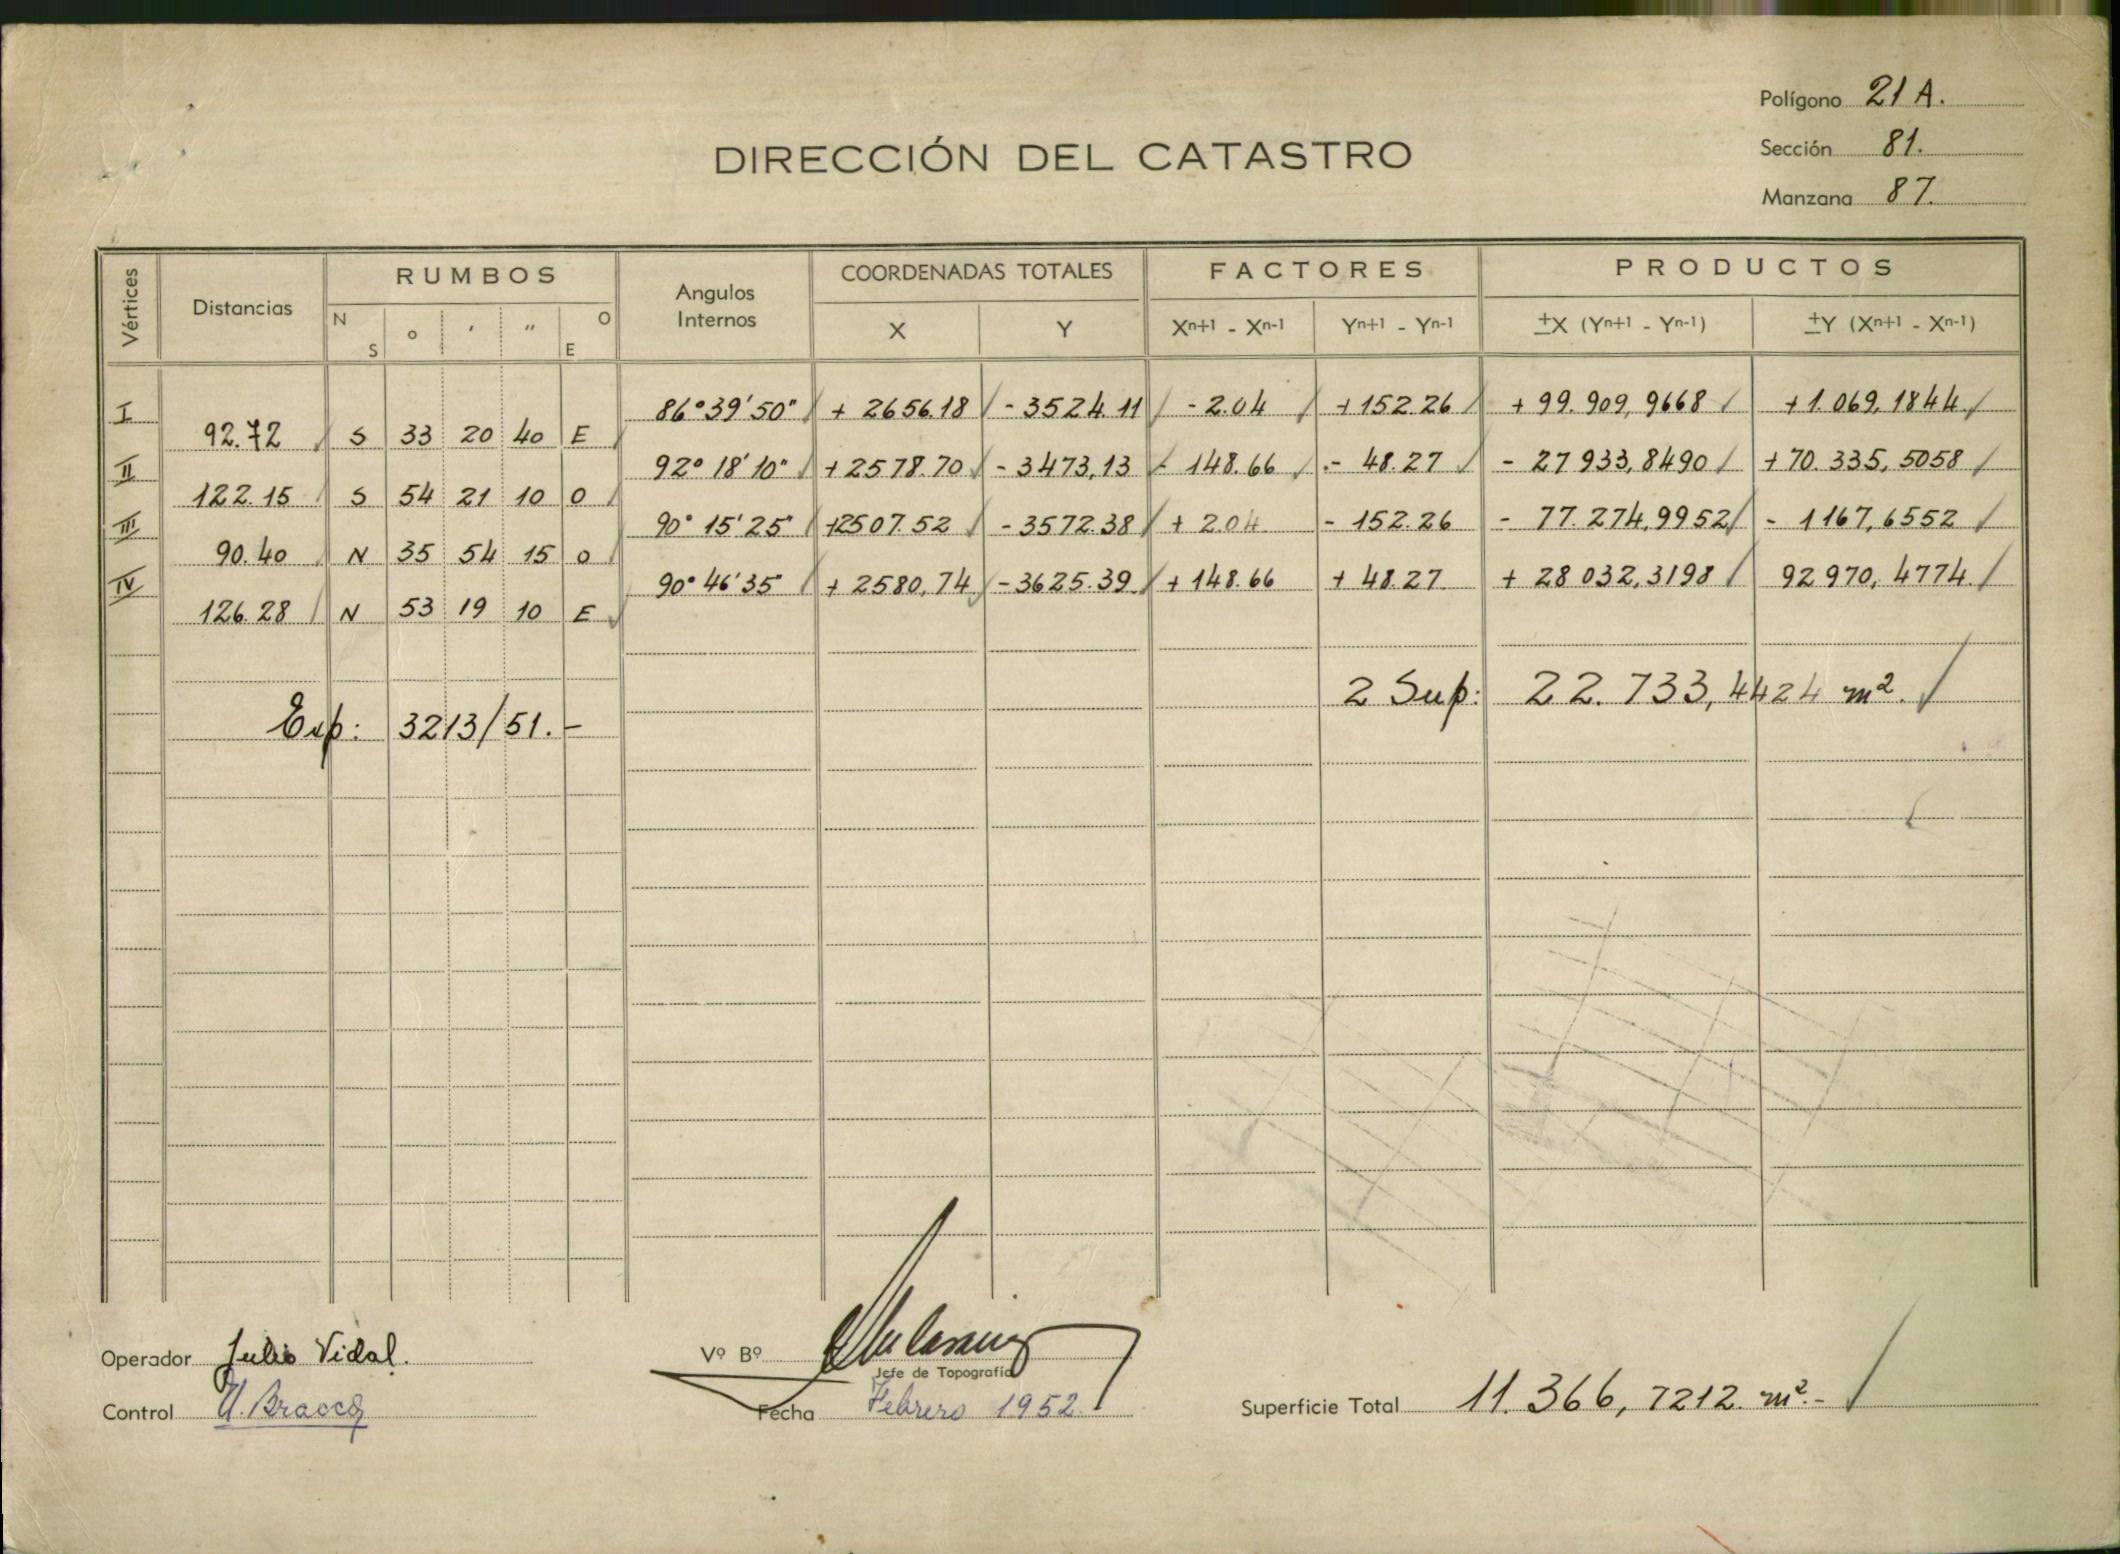 Polígono 21 A.
Sección 81.
Manzana 87.
DIRECCIÓN DEL CATASTRO
Vértices Distancias RUMBOS Angulos Internos COORDENADAS TOTALES FACTORES PRODUCTOS
N S ° ' " O E X Y Xn+1 - Xn-1 Yn+1 - Yn-1 ±X (Yn+1 - Yn-1) ±Y (Xn+1 - Xn-1)
I 86°39'50" + 2656.18 - 3524.11 - 2.04 + 152.26 + 99.909,9668 + 1.069,1844
92.72 S 33 20 40 E
II 92° 18' 10" + 2578.70 - 3473,13 - 148.66 - 48.27 - 27 933,8490 + 70.335,5058
122.15 S 54 21 10 O
III 90° 15' 25" +2507.52 - 3572.38 + 2.04 - 152.26 - 77.274,9952 - 1167,6552
90.40 N 35 54 15 O
IV 90° 46' 35" + 2580,74 - 3625.39 + 148.66 + 48.27 + 28 032,3198 92 970,4774.
126.28 N 53 19 10 E
2 Sup: 22.733,4424 m².
Exp: 3213/51.-
Operador Julio Vidal.
Vº Bº
Jefe de Topografía
Control
Fecha Febrero 1952.
Superficie Total 11.366,7212. m².-